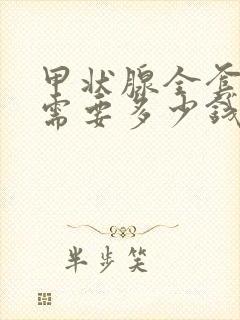 甲状腺全套
需要多少钱
半步笑